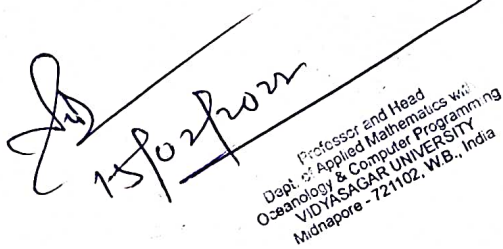 15/02/2022
Professor and Head
Dept. of Applied Mathematics with
Oceanology & Computer Programming
VIDYASAGAR UNIVERSITY
Midnapore - 721102, W.B., India